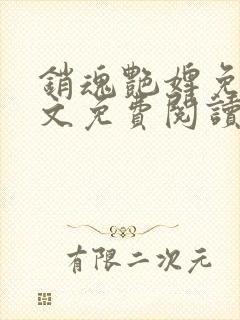 銷魂艷婢免
文免費閱讀
有限二次元